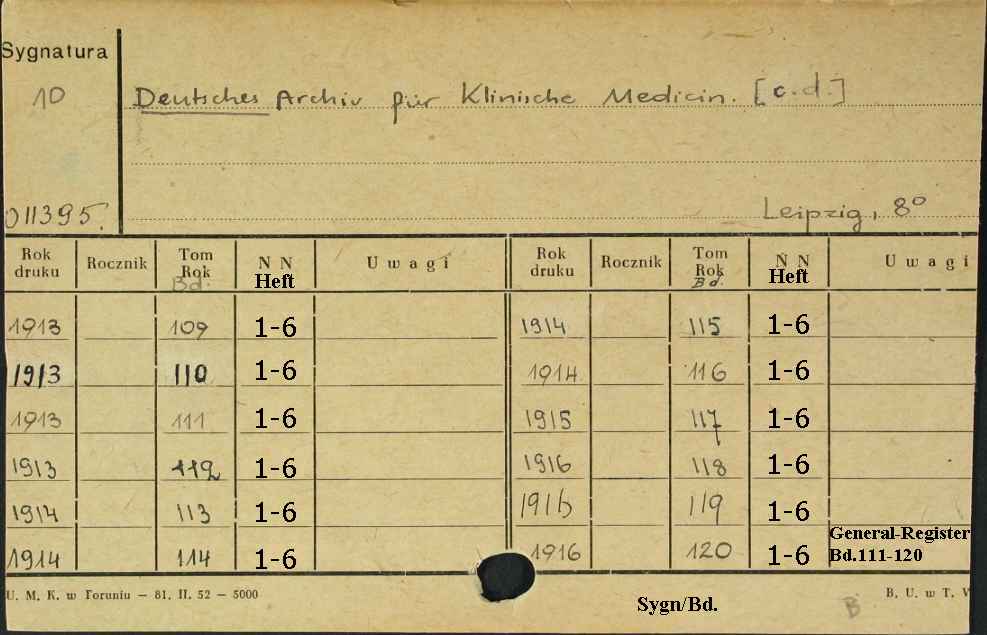 Sygnatura
10
Deutsches Archiv für Klinische Medicin. [c.d.]
011395.
Leipzig, 8º
Rok druku Rocznik Tom Rok Bd. N N Heft Uwagi Rok druku Rocznik Tom Rok Bd. N N Heft Uwagi
1913 109 1-6 1914 115 1-6
1913 110 1-6 1914 116 1-6
1913 111 1-6 1915 117 1-6
1913 112 1-6 1916 118 1-6
1914 113 1-6 1916 119 1-6
1914 114 1-6 1916 120 1-6 General-Register Bd.111-120
U. M. K. w Toruniu — 81. II. 52 — 5000
Sygn/Bd.
B
B. U. w T. V